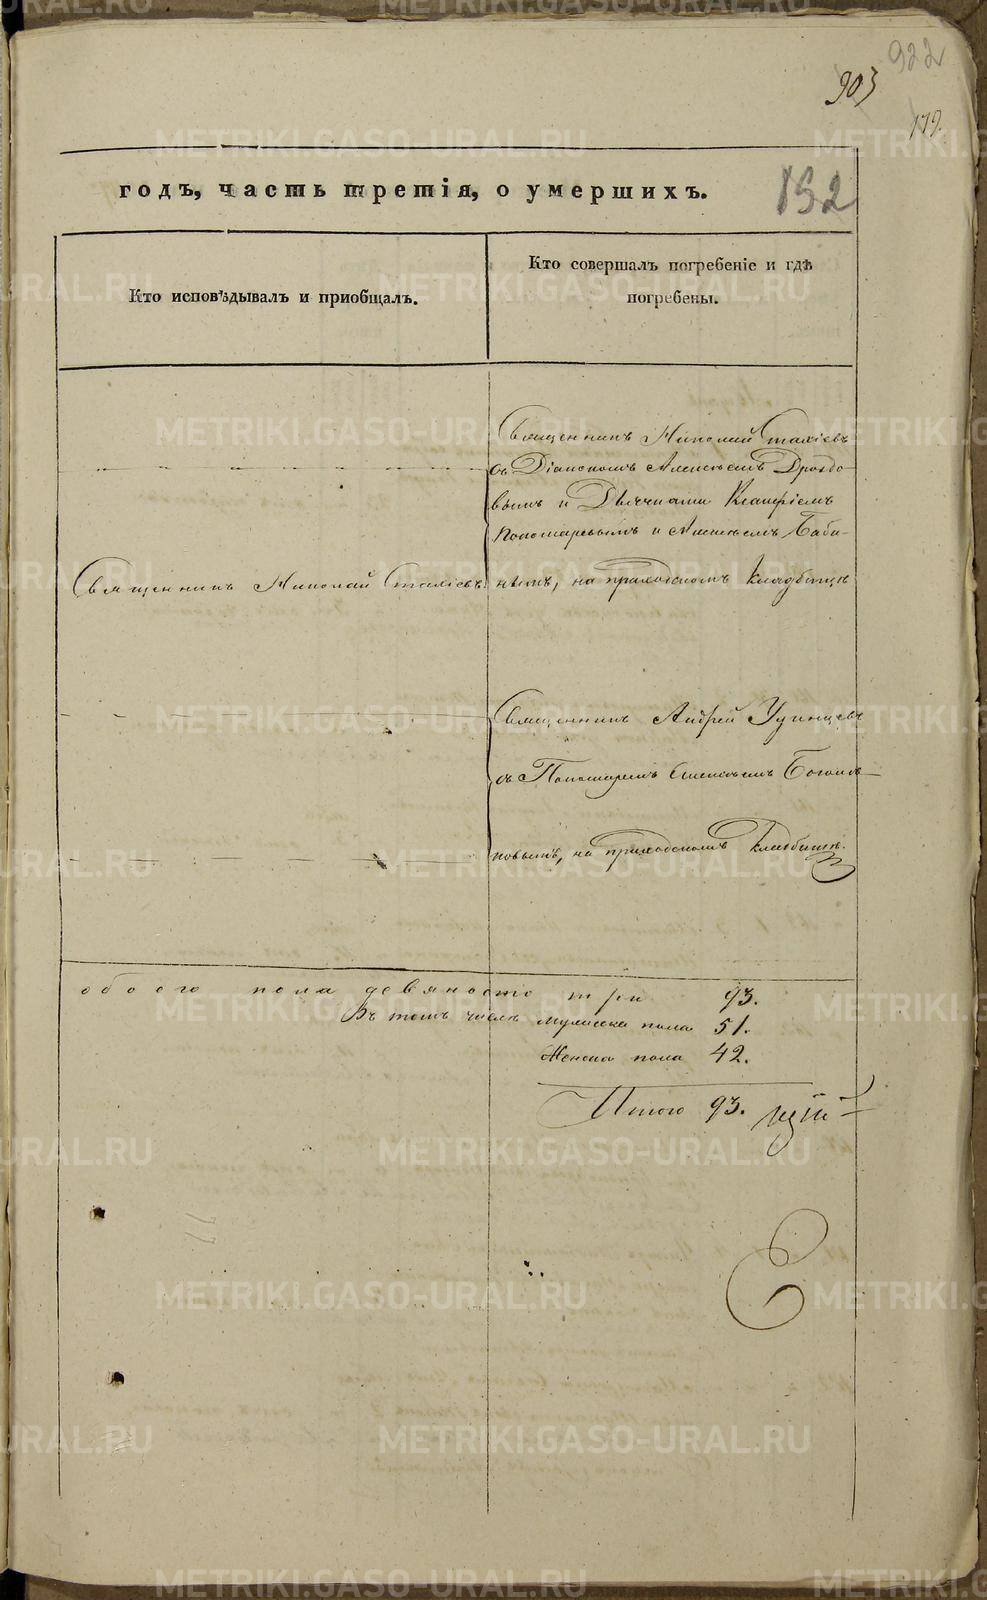 922
903
179.
годъ, часть третія, о умершихъ.
192
Кто исповѣдывалъ и приобщалъ.
Кто совершалъ погребеніе и гдѣ
погребены.
Священникъ Николай Стахіевъ
съ Діакономъ Алексѣемъ Дроздо-
вымъ и Дьячками
Пономаревымъ и Алексѣемъ Баби-
Священникъ Николай Стахіевъ.
нымъ, на приходскомъ кладбищѣ
Священникъ Андрей Удинцевъ
съ Пономаремъ Алексѣемъ
новымъ, на приходскомъ кладбищѣ.
обоего пола девяносто три 93.
Въ томъ числѣ мужеска пола 51.
Женска пола 42.
Итого 93.
METRIKI.GASO-URAL.RU